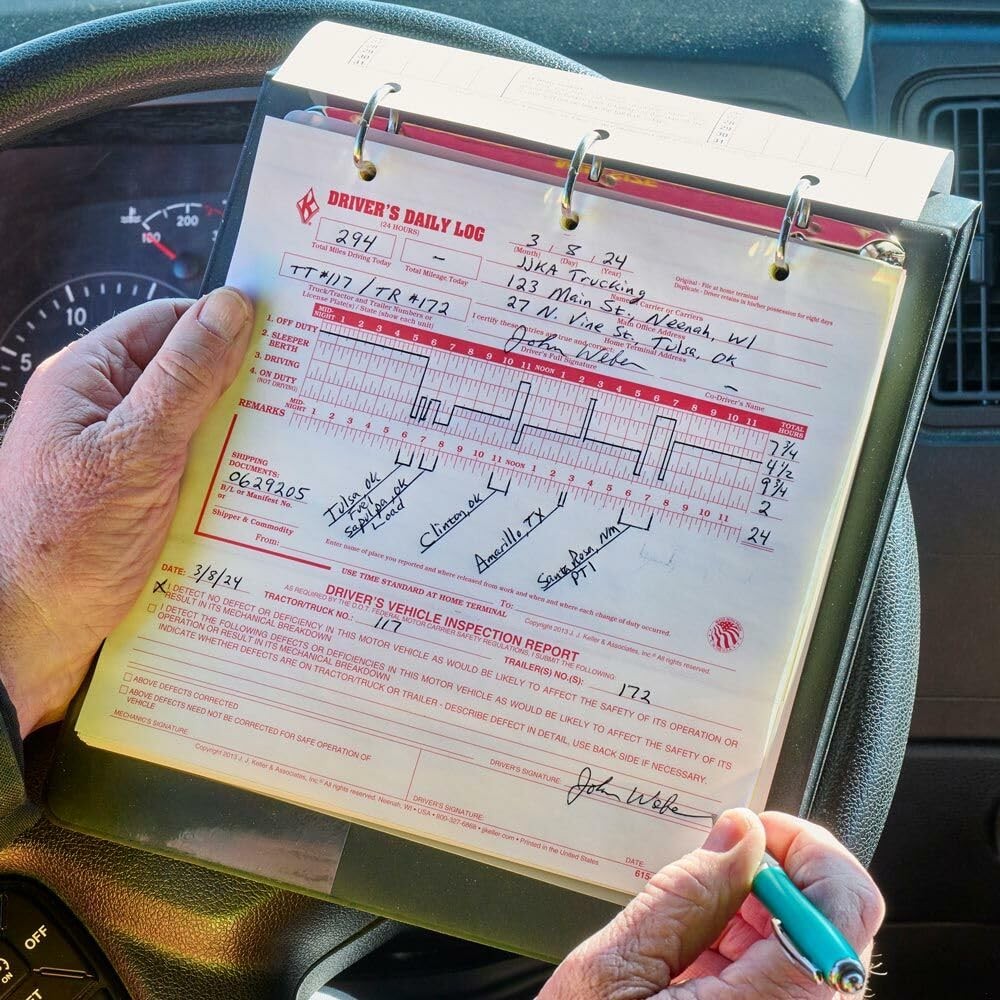 DRIVER'S DAILY LOG
(24 HOURS)
3 / 8 / 24
(Month) (Day) (Year)
Original - File at home terminal
Duplicate - Driver retains in his/her possession for eight days
294
Total Miles Driving Today
-
Total Mileage Today
JJKA Trucking
Name of Carrier or Carriers
123 Main St., Neenah, WI
Main Office Address
TT#117 / TR #172
Truck/Tractor and Trailer Numbers or
License Plate(s) / State (show each unit)
27 N. Vine St, Tulsa, OK
Home Terminal Address
I certify these entries are true and correct:
John Weber
Driver's Full Signature
-
Co-Driver's Name
MID-NIGHT 1 2 3 4 5 6 7 8 9 10 11 NOON 1 2 3 4 5 6 7 8 9 10 11 TOTAL HOURS
1. OFF DUTY 7 3/4
2. SLEEPER BERTH 4 1/2
3. DRIVING 9 3/4
4. ON DUTY (NOT DRIVING) 2
MID-NIGHT 1 2 3 4 5 6 7 8 9 10 11 NOON 1 2 3 4 5 6 7 8 9 10 11
24
REMARKS
SHIPPING
DOCUMENTS:
0629205
B/L or Manifest No.
or
Shipper & Commodity
From:
Tulsa OK
Fuel
Sapulpa, OK
Load
Clinton, OK
Amarillo, TX
Santa Rosa, NM
PTI
Enter name of place you reported and where released from work and when and where each change of duty occurred.
To:
USE TIME STANDARD AT HOME TERMINAL
Copyright 2013 J. J. Keller & Associates, Inc.® All rights reserved.
DRIVER'S VEHICLE INSPECTION REPORT
AS REQUIRED BY THE D.O.T. FEDERAL MOTOR CARRIER SAFETY REGULATIONS, I SUBMIT THE FOLLOWING:
DATE: 3/8/24
TRACTOR/TRUCK NO.: 117
TRAILER(S) NO.(S): 172
X I DETECT NO DEFECT OR DEFICIENCY IN THIS MOTOR VEHICLE AS WOULD BE LIKELY TO AFFECT THE SAFETY OF ITS OPERATION OR
RESULT IN ITS MECHANICAL BREAKDOWN
I DETECT THE FOLLOWING DEFECTS OR DEFICIENCIES IN THIS MOTOR VEHICLE AS WOULD BE LIKELY TO AFFECT THE SAFETY OF ITS
OPERATION OR RESULT IN ITS MECHANICAL BREAKDOWN
INDICATE WHETHER DEFECTS ARE ON TRACTOR/TRUCK OR TRAILER - DESCRIBE DEFECT IN DETAIL, USE BACK SIDE IF NECESSARY.
ABOVE DEFECTS CORRECTED
ABOVE DEFECTS NEED NOT BE CORRECTED FOR SAFE OPERATION OF
VEHICLE
DRIVER'S SIGNATURE John Webe
MECHANIC'S SIGNATURE
DRIVER'S SIGNATURE
DATE
Copyright 2013 J. J. Keller & Associates, Inc.® All rights reserved. Neenah, WI • USA • 800-327-6868 • jjkeller.com • Printed in the United States
615
200
100
10
5
OFF
ON